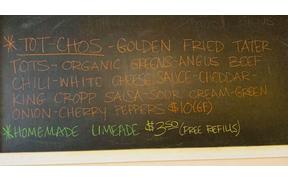 * TOT-CHOS - GOLDEN FRIED TATER
TOTS - ORGANIC GREENS - ANGUS BEEF
CHILI - WHITE CHEESE SAUCE - CHEDDAR -
KING CROPP SALSA - SOUR CREAM - GREEN
ONION - CHERRY PEPPERS $10 (GF)
* HOMEMADE LIMEADE $3.50 (FREE REFILLS)